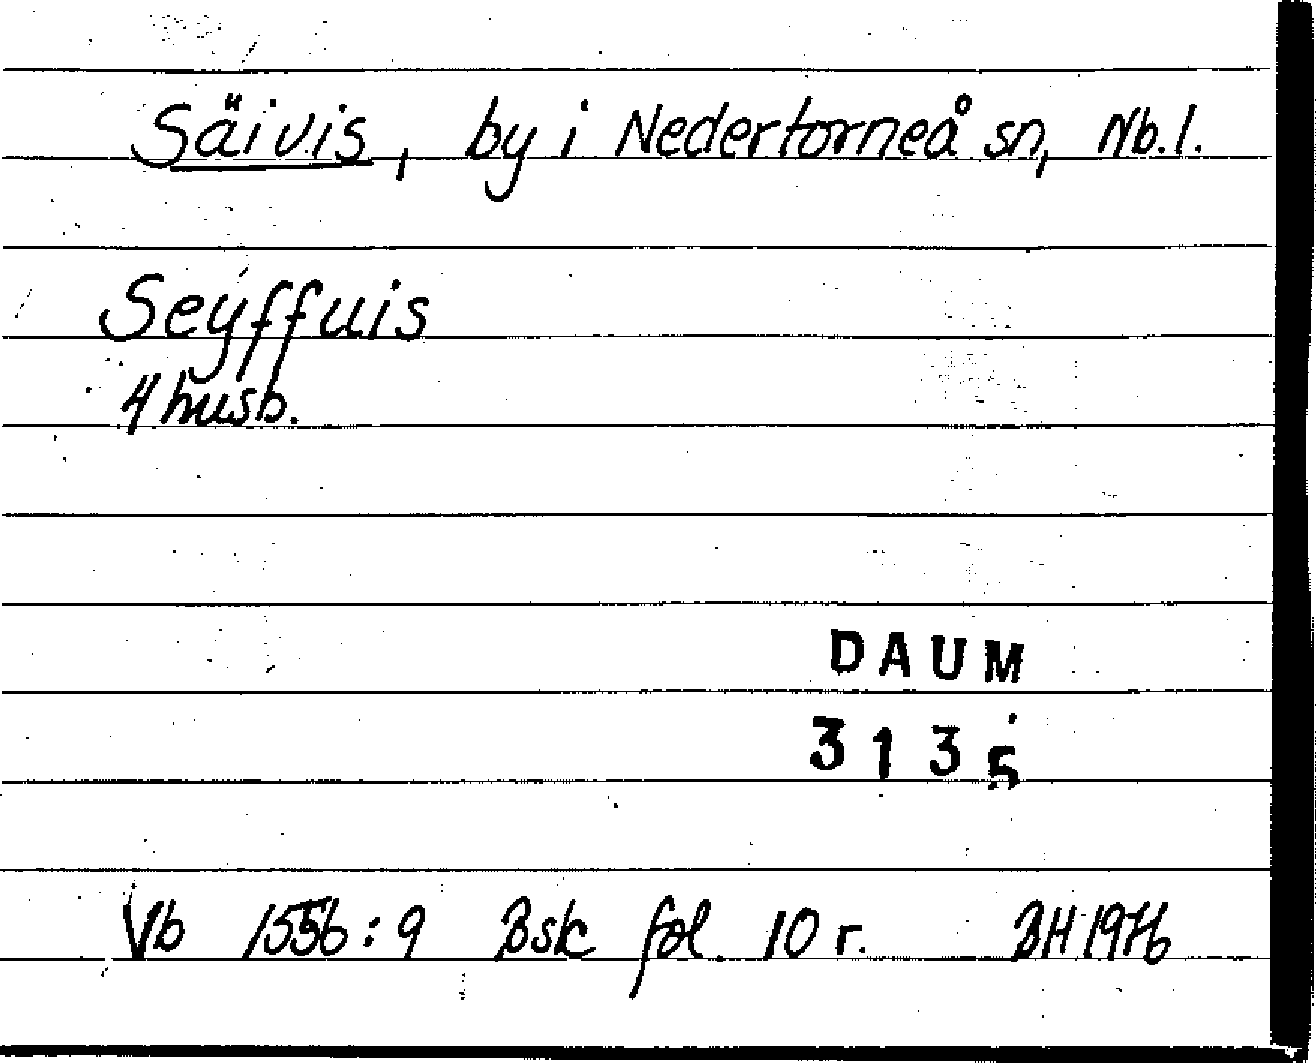 Säivis, by i Nedertorneå sn, Nb.l.
Seyffuis
4 husb.
DAUM
3135
Vb 1556:9 Bsk fol. 10 r. BH 1976